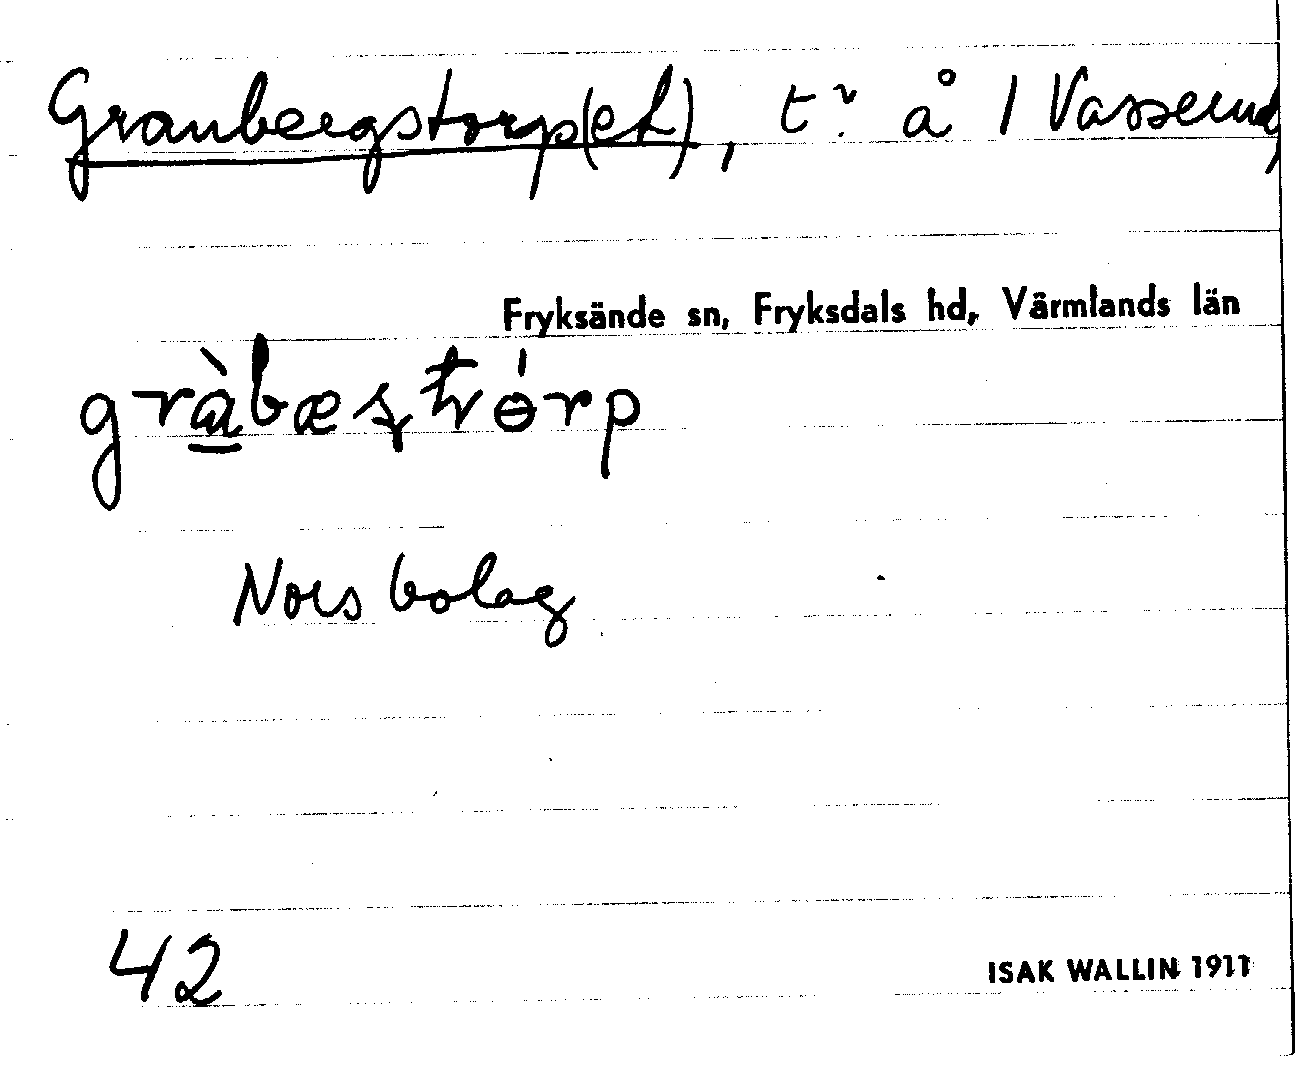 Granbergstorp(et), tr. å 1 Vasserud,
Fryksände sn, Fryksdals hd, Värmlands län
gràbæstórp
Nors bolag
42
ISAK WALLIN 1911